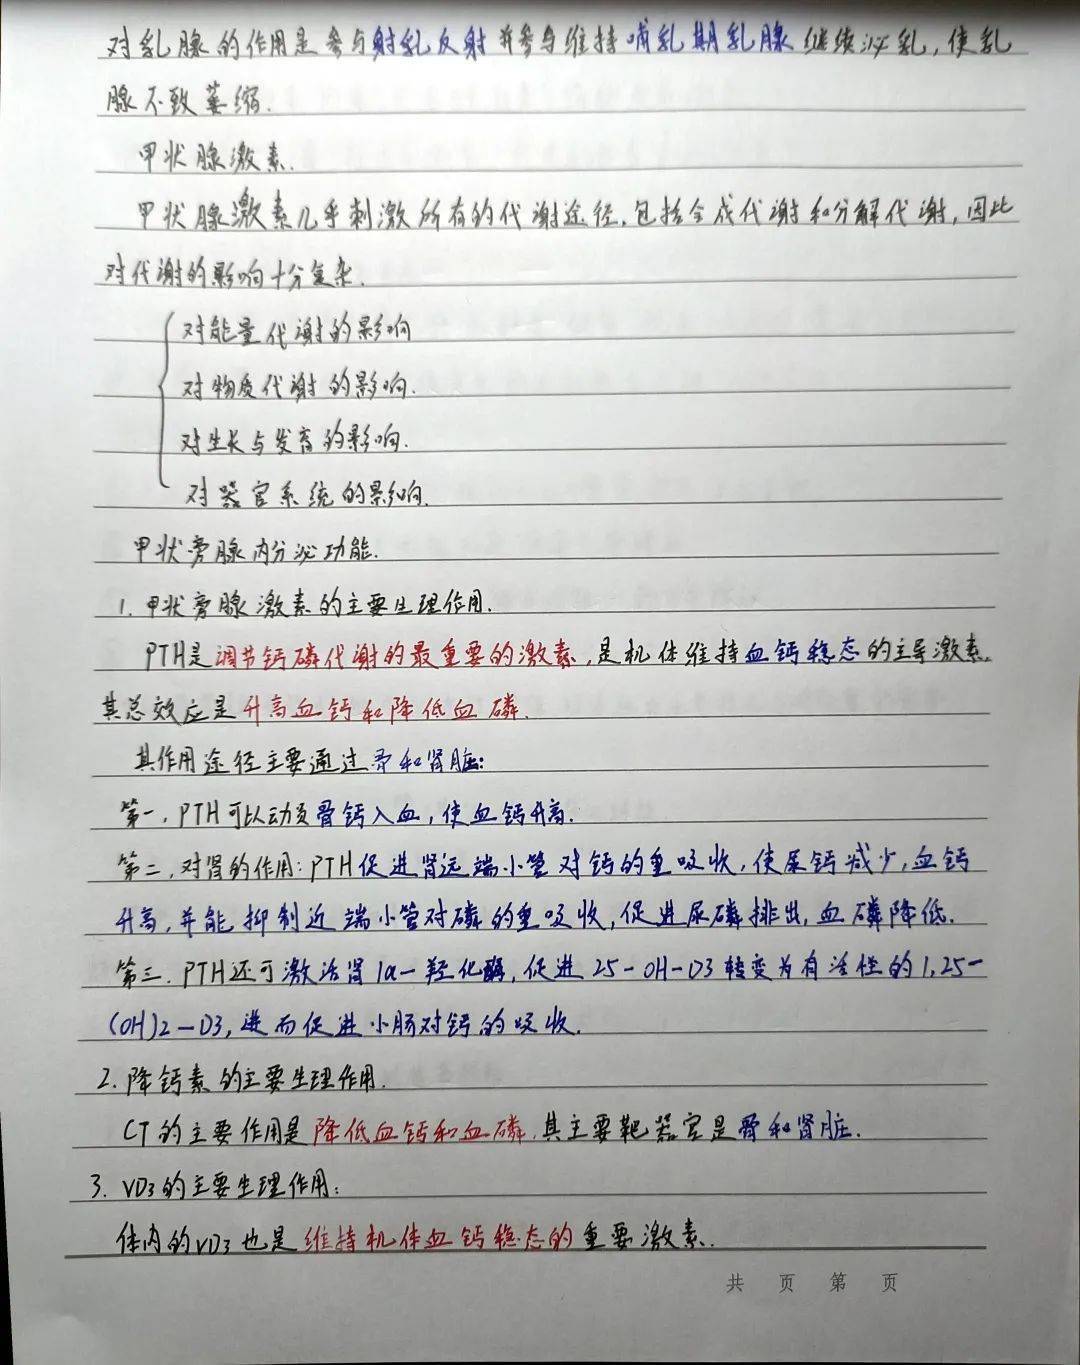 对乳腺的作用是参与射乳反射并参与维持哺乳期乳腺继续泌乳,使乳
腺不致萎缩.
甲状腺激素.
甲状腺激素几乎刺激所有的代谢途径,包括合成代谢和分解代谢,因此
对代谢的影响十分复杂.
对能量代谢的影响
对物质代谢的影响.
对生长与发育的影响.
对器官系统的影响.
甲状旁腺内分泌功能.
1.甲状旁腺激素的主要生理作用.
PTH是调节钙磷代谢的最重要的激素,是机体维持血钙稳态的主导激素.
其总效应是升高血钙和降低血磷.
其作用途径主要通过骨和肾脏:
第一,PTH可以动员骨钙入血,使血钙升高.
第二,对肾的作用:PTH促进肾远端小管对钙的重吸收,使尿钙减少,血钙
升高,并能抑制近端小管对磷的重吸收,促进尿磷排出,血磷降低.
第三.PTH还可激活肾1α-羟化酶,促进25-OH-D3转变为有活性的1,25-
(OH)2-D3,进而促进小肠对钙的吸收.
2.降钙素的主要生理作用.
CT的主要作用是降低血钙和血磷.其主要靶器官是骨和肾脏.
3.VD3的主要生理作用:
体内的VD3也是维持机体血钙稳态的重要激素.
共 页 第 页